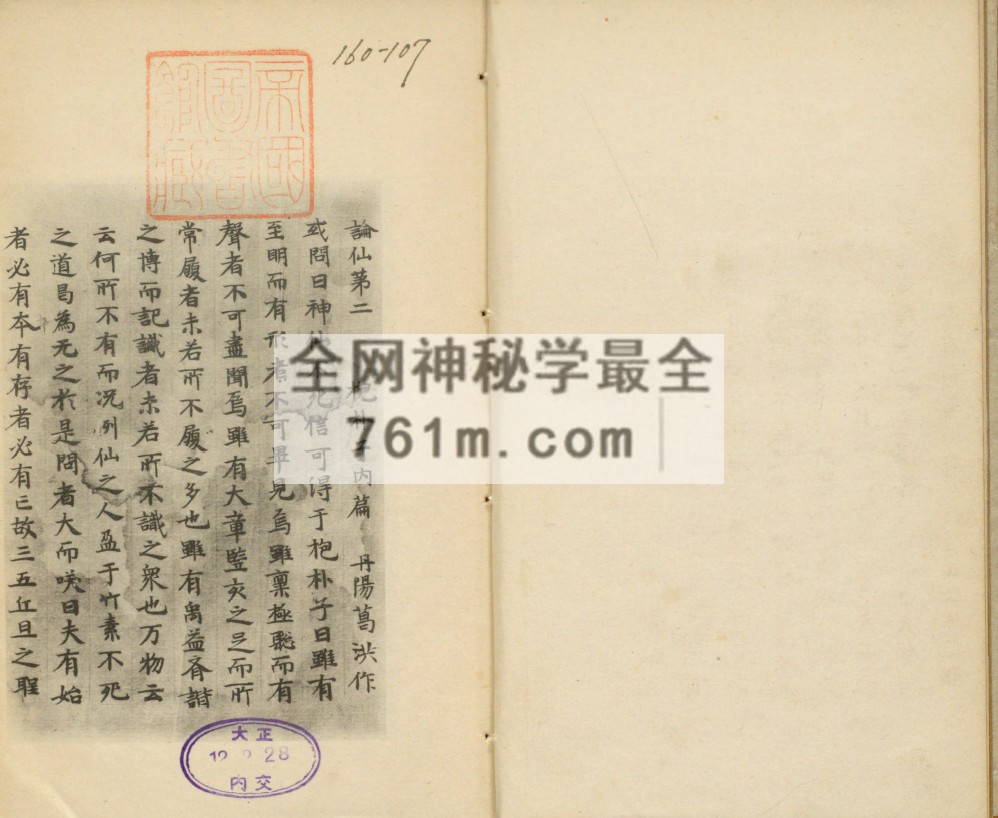 160-107
帝國
圖書
館藏
論仙第二 抱朴子内篇 丹陽葛洪作
或問曰神仙不死信可得于抱朴子曰雖有
至明而有形者不可畢見焉雖禀極聡而有
聲者不可盡聞焉雖有大章監亥之足而所
常履者未若所不履之多也雖有禹益齊諧
之博而記識者未若所不識之衆也万物云
云何所不有而况列仙之人盈于竹素不死
之道曷為无之於是問者大而咲曰夫有始
者必有卒有存者必有亡故三五丘旦之聖
全网神秘学最全
761m.com
大正
28
内交